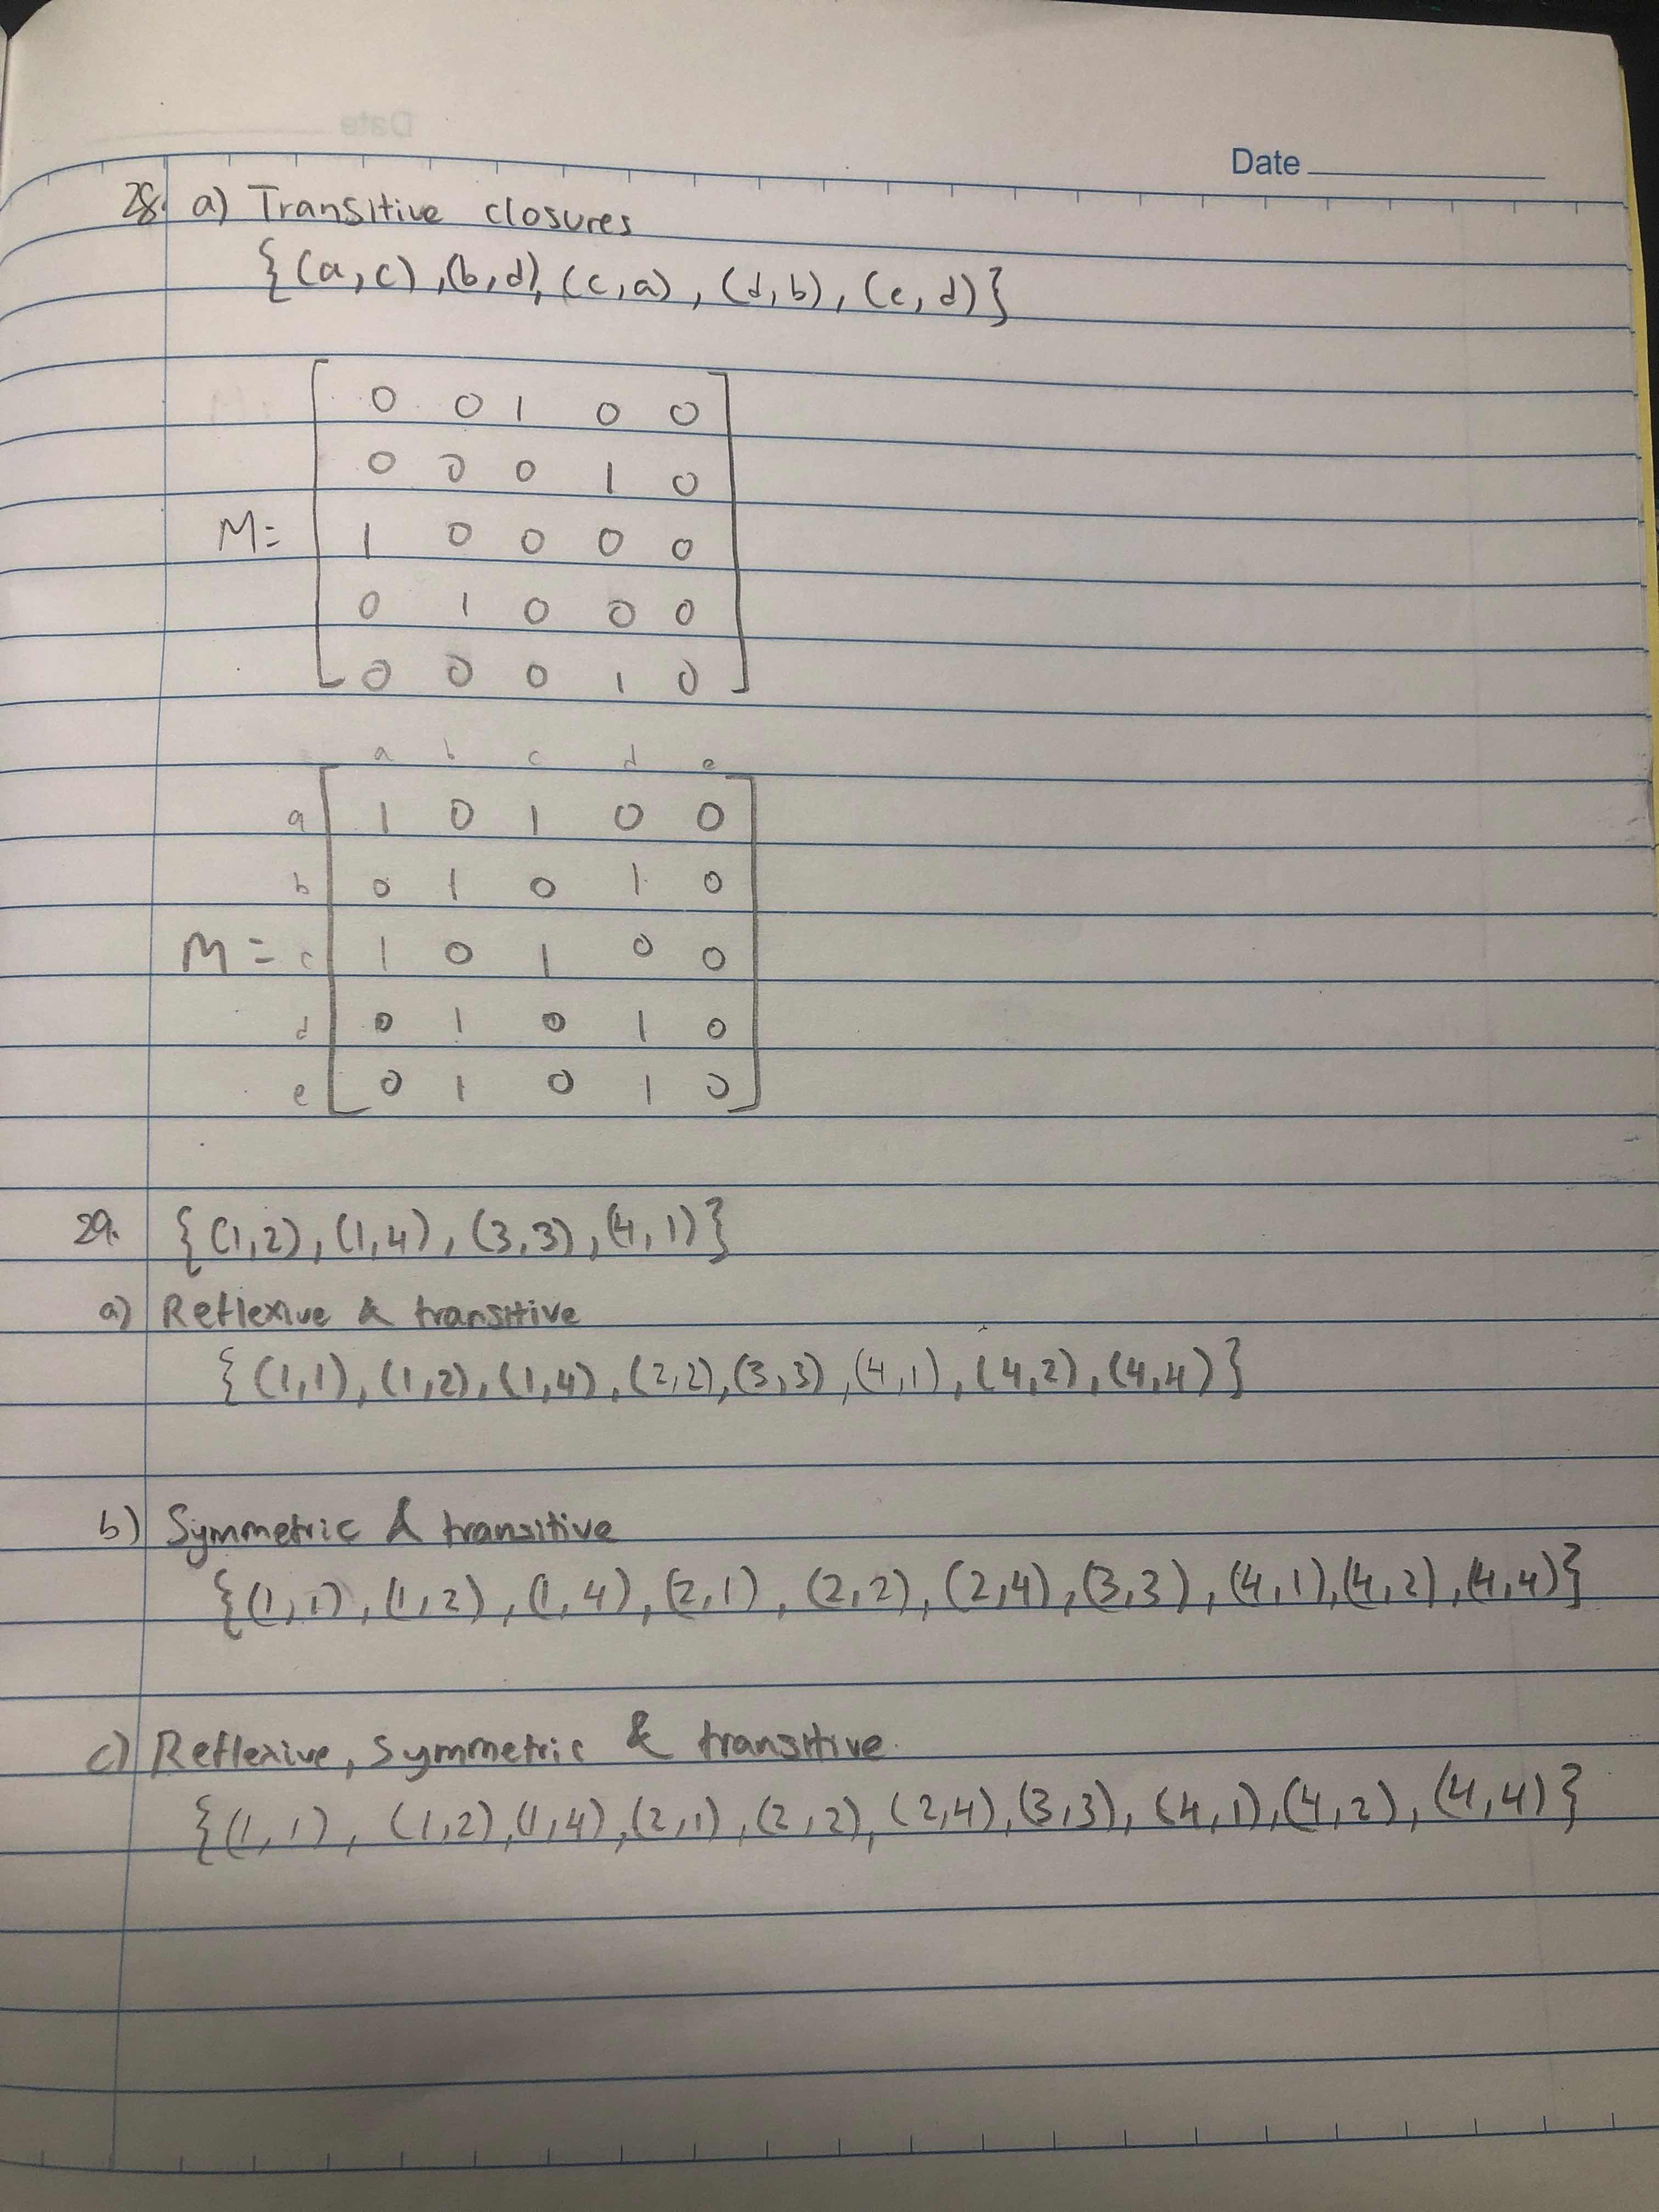 Date
28. a) Transitive closures
{(a,c),(b,d),(c,a),(d,b),(e,d)}
0 0 1 0 0
0 0 0 1 0
M= 1 0 0 0 0
0 1 0 0 0
0 0 0 1 0
a b c d e
a 1 0 1 0 0
b 0 1 0 1 0
M= c 1 0 1 0 0
d 0 1 0 1 0
e 0 1 0 1 0
29. {(1,2),(1,4),(3,3),(4,1)}
a) Reflexive & transitive
{(1,1),(1,2),(1,4),(2,2),(3,3),(4,1),(4,2),(4,4)}
b) Symmetric & transitive
{(1,1),(1,2),(1,4),(2,1),(2,2),(2,4),(3,3),(4,1),(4,2),(4,4)}
c) Reflexive, Symmetric & transitive.
{(1,1),(1,2),(1,4),(2,1),(2,2),(2,4),(3,3),(4,1),(4,2),(4,4)}